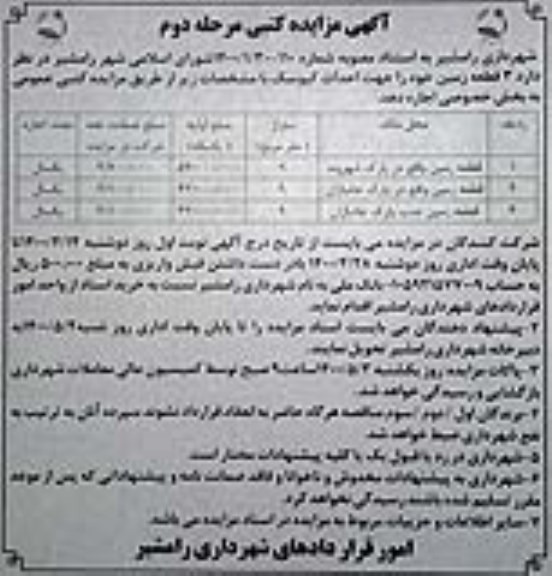 آگهی مزایده کتبی مرحله دوم
شهرداری رامشیر به استناد مصوبه شماره شورای اسلامی شهر رامشیر در نظر
دارد ۳ قطعه زمین خود را جهت احداث کیوسک با مشخصات زیر از طریق مزایده کتبی عمومی
به بخش خصوصی اجاره دهد.
ردیف محل ملک متراژ مبلغ پایه مبلغ ضمانت نامه شرکت در مزایده مدت اجاره
۱ قطعه زمین واقع در پارک شهروند ۹ یکسال
۲ قطعه زمین واقع در پارک جانبازان ۹ یکسال
۳ قطعه زمین جنب پارک جانبازان ۹ یکسال
شرکت کنندگان در مزایده می بایست از تاریخ درج آگهی نوبت اول روز دوشنبه ۱۴۰۰/۴/۱۴ تا
پایان وقت اداری روز دوشنبه ۱۴۰۰/۴/۲۸ با در دست داشتن فیش واریزی به مبلغ ۵۰۰,۰۰۰ ریال
به حساب بانک ملی به نام شهرداری رامشیر نسبت به خرید اسناد از واحد امور
قراردادهای شهرداری رامشیر اقدام نماید.
۲-پیشنهاد دهندگان می بایست اسناد مزایده را تا پایان وقت اداری روز شنبه ۱۴۰۰/۵/۲ به
دبیرخانه شهرداری رامشیر تحویل نمایند.
۳-پاکات مزایده روز یکشنبه ۱۴۰۰/۵/۳ ساعت ۹ صبح توسط کمیسیون عالی معاملات شهرداری
بازگشایی و رسیدگی خواهد شد.
۴-برندگان اول/دوم/سوم مناقصه هرگاه حاضر به انعقاد قرارداد نشوند سپرده آنان به ترتیب به
نفع شهرداری ضبط خواهد شد.
۵-شهرداری در رد یا قبول یک یا کلیه پیشنهادات مختار است.
۶-شهرداری به پیشنهادات مخدوش و ناخوانا و فاقد ضمانت نامه و پیشنهاداتی که پس از موعد
مقرر تسلیم شده باشند رسیدگی نخواهد کرد.
۷-سایر اطلاعات و جزییات مربوط به مزایده در اسناد مزایده می باشد.
امور قراردادهای شهرداری رامشیر